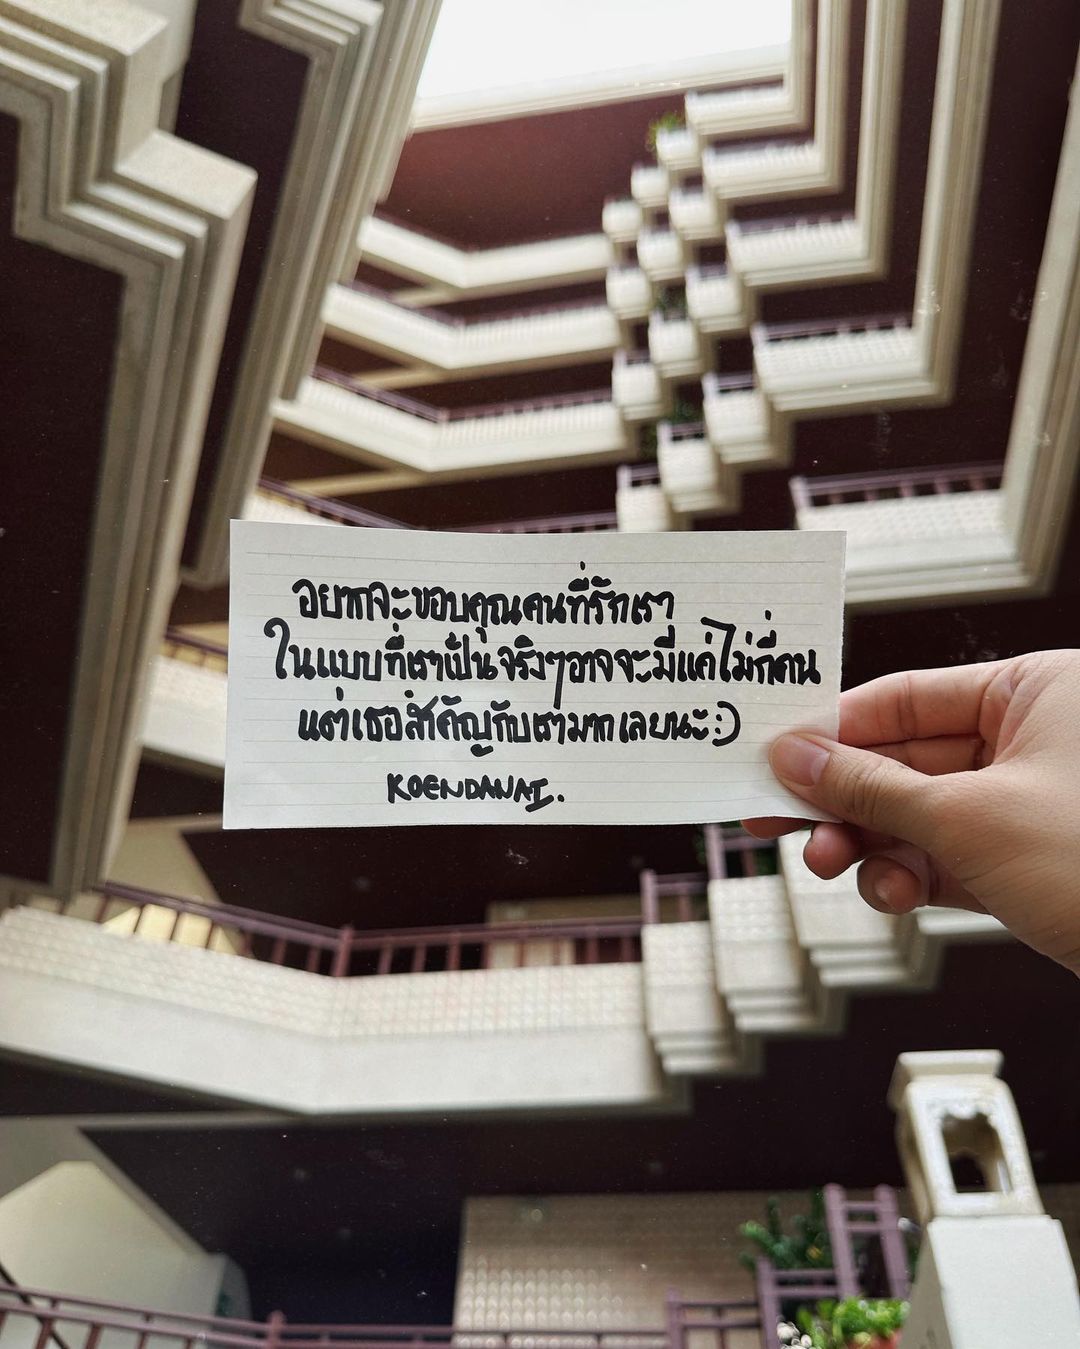 อยากจะขอบคุณคนที่รักเรา
ในแบบที่เราเป็นจริงๆอาจจะมีแค่ไม่กี่คน
แต่เธอสำคัญกับเรามากเลยนะ:)
KOENDANAI.